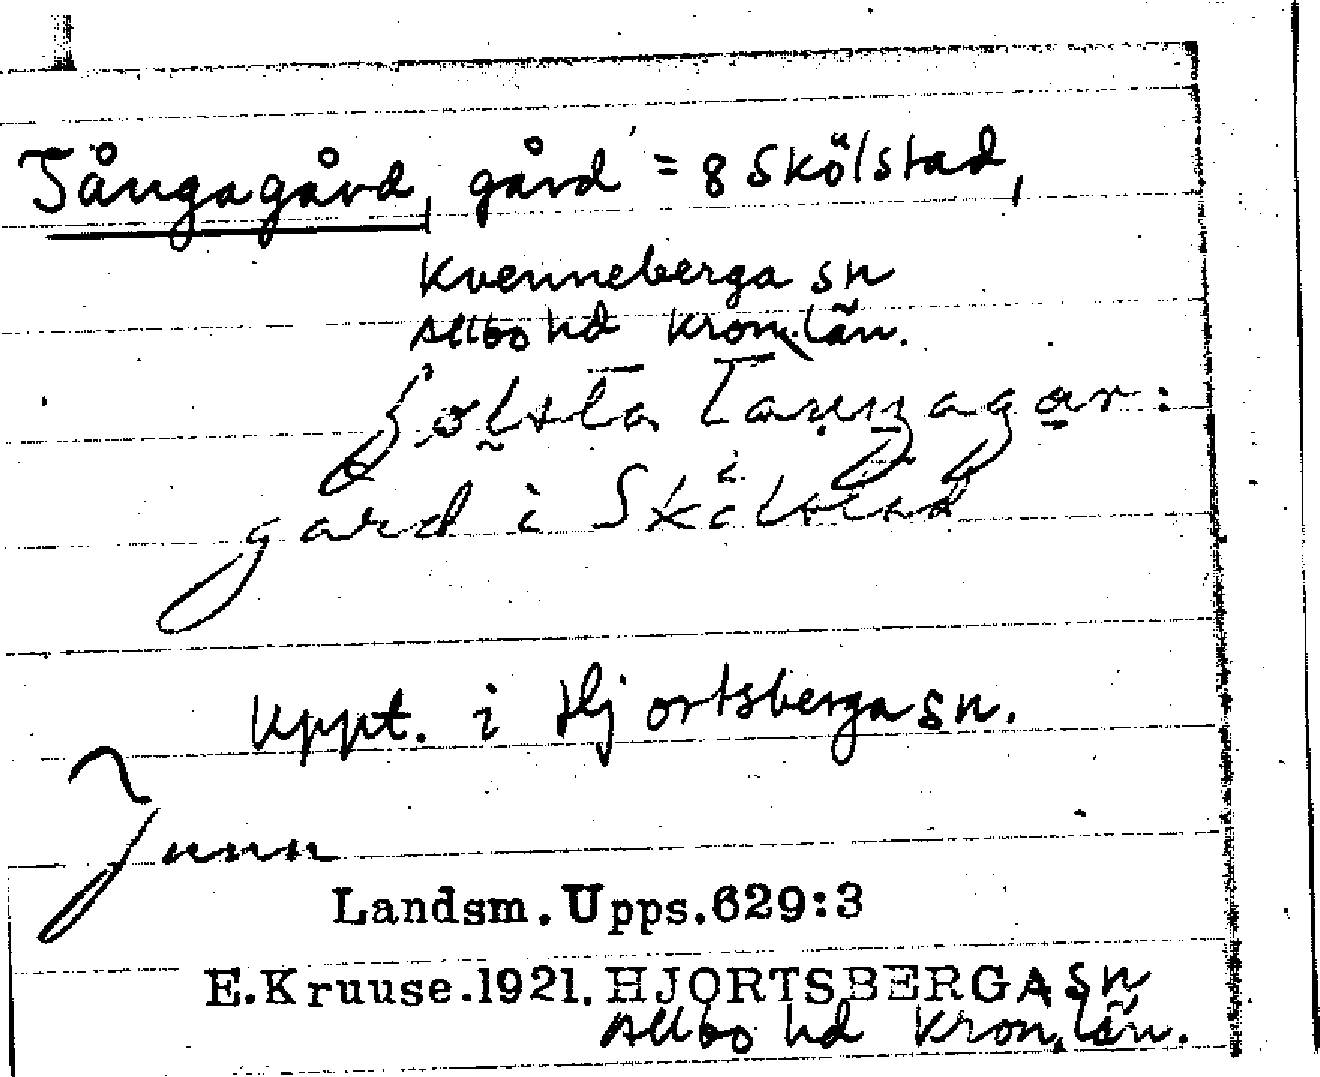 Tångagård, gård = 8 Skölstad,
Kvenneberga sn
Allbo hd Kron. län.
gård i Skölstad
Uppt. i Hjortsberga sn.
Landsm. Upps. 629:3
E. Kruuse. 1921. HJORTSBERGA sn
Allbo hd Kron. län.